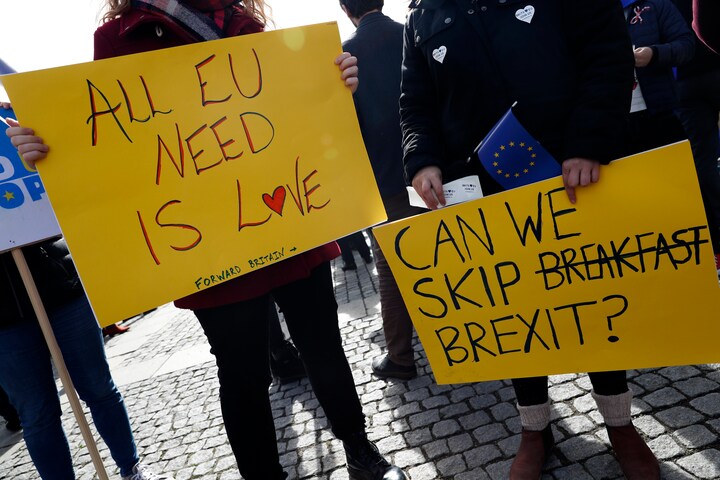 ALL EU
NEED
IS LOVE
FORWARD BRITAIN →
CAN WE
SKIP BREAKFAST
BREXIT?